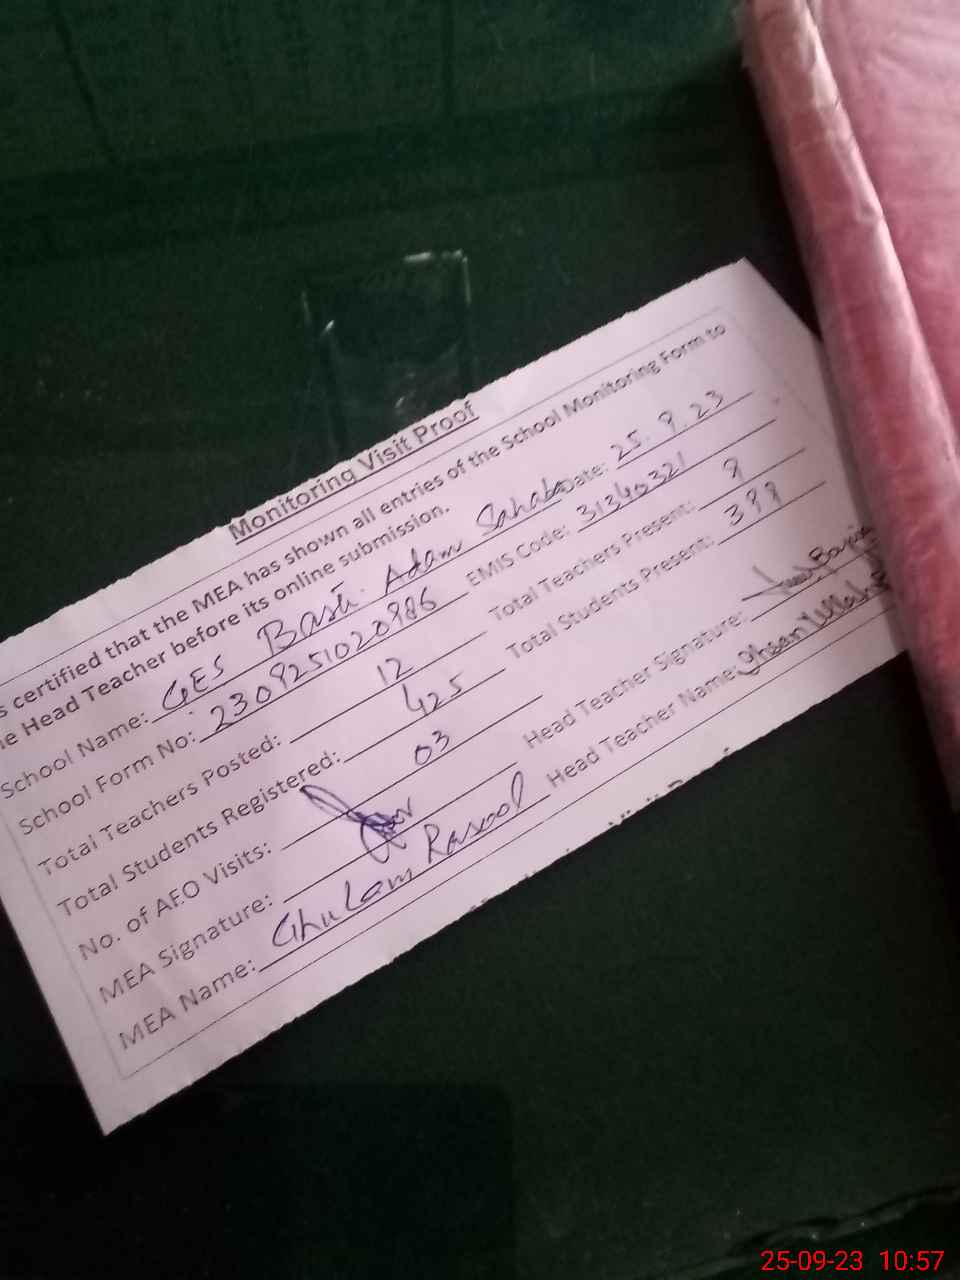 Monitoring Visit Proof
s certified that the MEA has shown all entries of the School Monitoring Form to
e Head Teacher before its online submission.
School Name: GES Basti Adam Sahaba Date: 25.9.23
School Form No: 2309251020986 EMIS Code: 31340321
Total Teachers Posted: 12 Total Teachers Present: 9
Total Students Registered: 425 Total Students Present: 399
No. of AEO Visits: 03
MEA Signature: Head Teacher Signature:
MEA Name: Ghulam Rasool Head Teacher Name: Ihsan Ullah
25-09-23 10:57